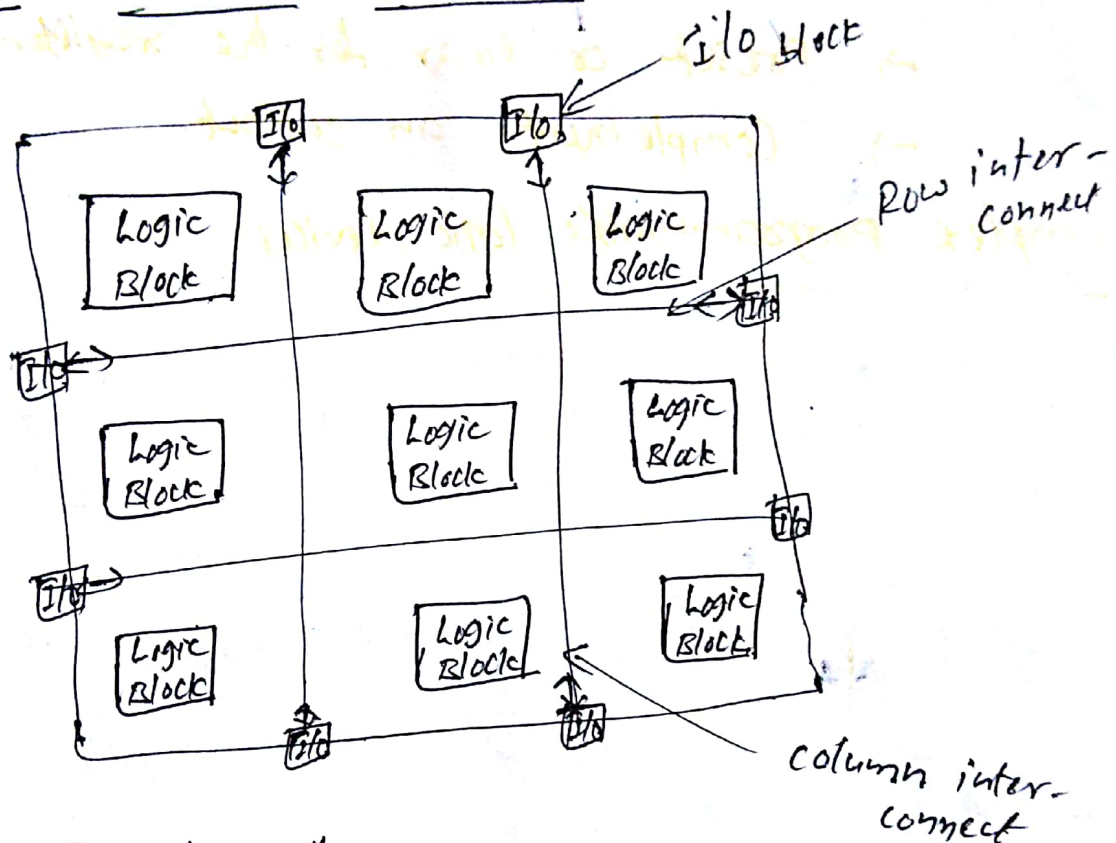 I/O block
I/O
I/O
Row inter-
connect
Logic
Block
Logic
Block
Logic
Block
I/O
I/O
Logic
Block
Logic
Block
Logic
Block
I/O
I/O
Logic
Block
Logic
Block
Logic
Block
I/O
I/O
column inter-
connect